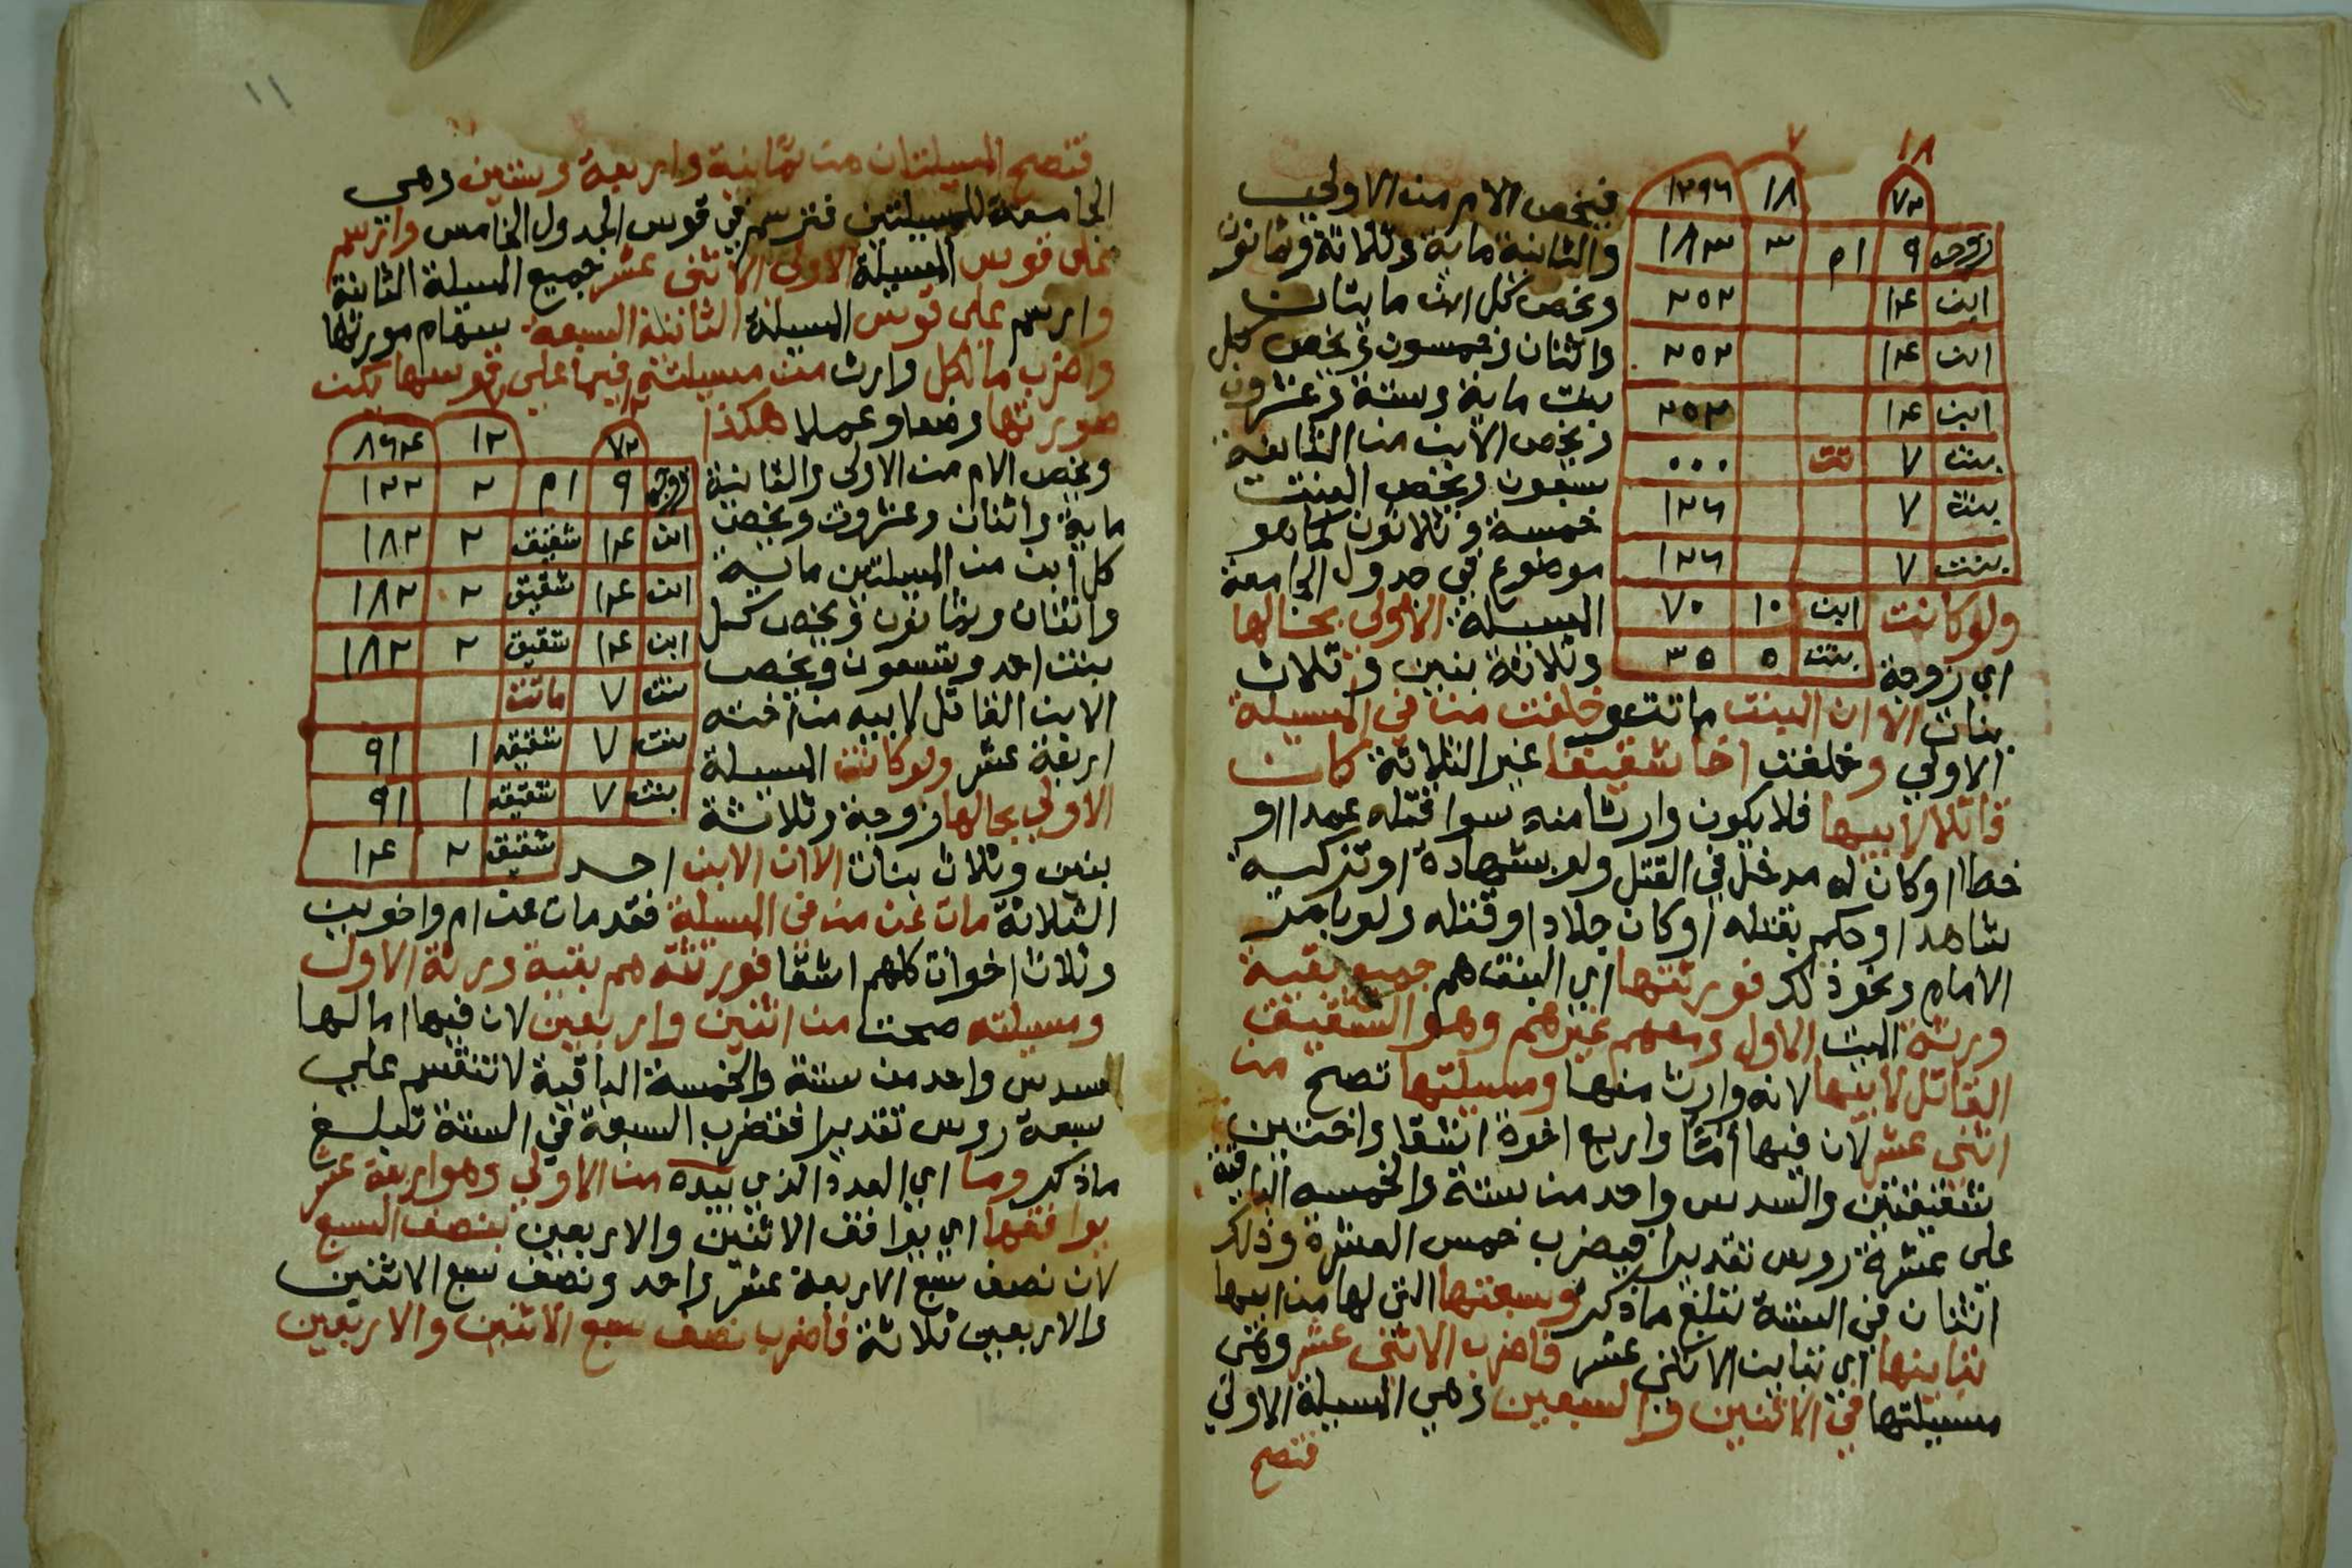 ١٨ ٧
٧٢ ١٨ ١٢٩٦
زوجه ٩ ام ٣ ١٨٣
ابن ١٤ ٢٥٢
ابن ١٤ ٢٥٢
ابن ١٤ ٢٥٢
بنت ٧ تت ٠٠٠
بنت ٧ ١٢٦
بنت ٧ ١٢٦
ابن ١٠ ٧٠
بنت ٥ ٣٥
فيخص الام من الاولي
والثانية ماية وثلاثة وثمانون
ويخص كل ابن مايتان
واثنان وخمسون ويخص كل
بنت ماية وستة وعشرون
ويخص الابن من الثانية
سبعون ويخص البنت
خمسة وثلاثون كما هو
موضوع في جدول الجامعة
ولو كانت المسيلة الاولي بحالها
اي زوجة وثلاثة بنين وثلاث
بنات الا ان البنت ماتت وخلفت من في المسيلة
الاولي وخلفت اخا شقيقا غير الثلاثة كان
قاتلا لابيها فلا يكون وارثا منه سوا قتله عمدا او
خطا او كان له مدخل في القتل ولو بشهادة او تزكية
شاهد او حكم بقتله او كان جلادا وقتله ولو بامر
الامام ونحو ذلك فورثتها اي البنت هم جميع بقية
ورثة الميت الاول ومعهم غيرهم وهو الشقيق
القاتل لابيها لانه وارث منها ومسيلتها تصح من
اثني عشر لان فيها اما واربع اخوة اشقا واختين
شقيقتين والسدس واحد من ستة والخمسه الباقية
علي عشرة روس تقديرا فيضرب خمس العشرة وذلك
اثنان في الستة تبلغ ماذكر وسبعتها التي لها من ابيها
تباينها اي تباين الاثني عشر فاضرب الاثني عشر وهي
مسيلتها في الاثنين والسبعين وهي المسيلة الاولي
فتصح
١١
فتصح المسيلتان من ثمانية واربعة وستين وهي
الجامعة للمسيلتين فترسم في قوس الجدول الخامس وارسم
علي قوس المسيلة الاولي الاثني عشر جميع المسيلة الثانية
وارسم علي قوس المسيلة الثانية السبعة سهام مورثها
واضرب ما لكل وارث من مسيلته فيما علي قوسها تكن
صورتها وضعا وعملا هكذا
٧
٧٢ ١٢ ٨٦٤
زوجه ٩ ام ٢ ١٢٢
ابن ١٤ شقيق ٢ ١٨٢
ابن ١٤ شقيق ٢ ١٨٢
ابن ١٤ شقيق ٢ ١٨٢
بنت ٧ ماتت
بنت ٧ شقيقه ١ ٩١
بنت ٧ شقيقه ١ ٩١
شقيق ٢ ١٤
ويخص الام من الاولي والثانية
ماية واثنان وعشرون ويخص
كل ابن من المسيلتين ماية
واثنان وثمانون ويخص كل
بنت احد وتسعون ويخص
الابن القاتل لابيه من اخته
اربعة عشر ولو كانت المسيلة
الاولي بحالها زوجة وثلاثة
بنين وثلاث بنات الا ان الابن احد
الثلاثة مات عن من في المسيلة فقد مات عن ام واخوين
وثلاث اخوات كلهم اشقا فورثته هم بقية ورثة الاول
ومسيلته صحت من اثنين واربعين لان فيها اما لها
السدس واحد من ستة والخمسة الباقية لا تنقسم علي
سبعة روس تقديرا فتضرب السبعة في الستة تبلغ
ماذكر وما اي العدد الذي بيده من الاولي وهو اربعة عشر
يوافقها اي يوافق الاثنين والاربعين بنصف السبع
لان نصف سبع الاربعة عشر واحد ونصف سبع الاثنين
والاربعين ثلاثة فاضرب نصف سبع الاثنين والاربعين